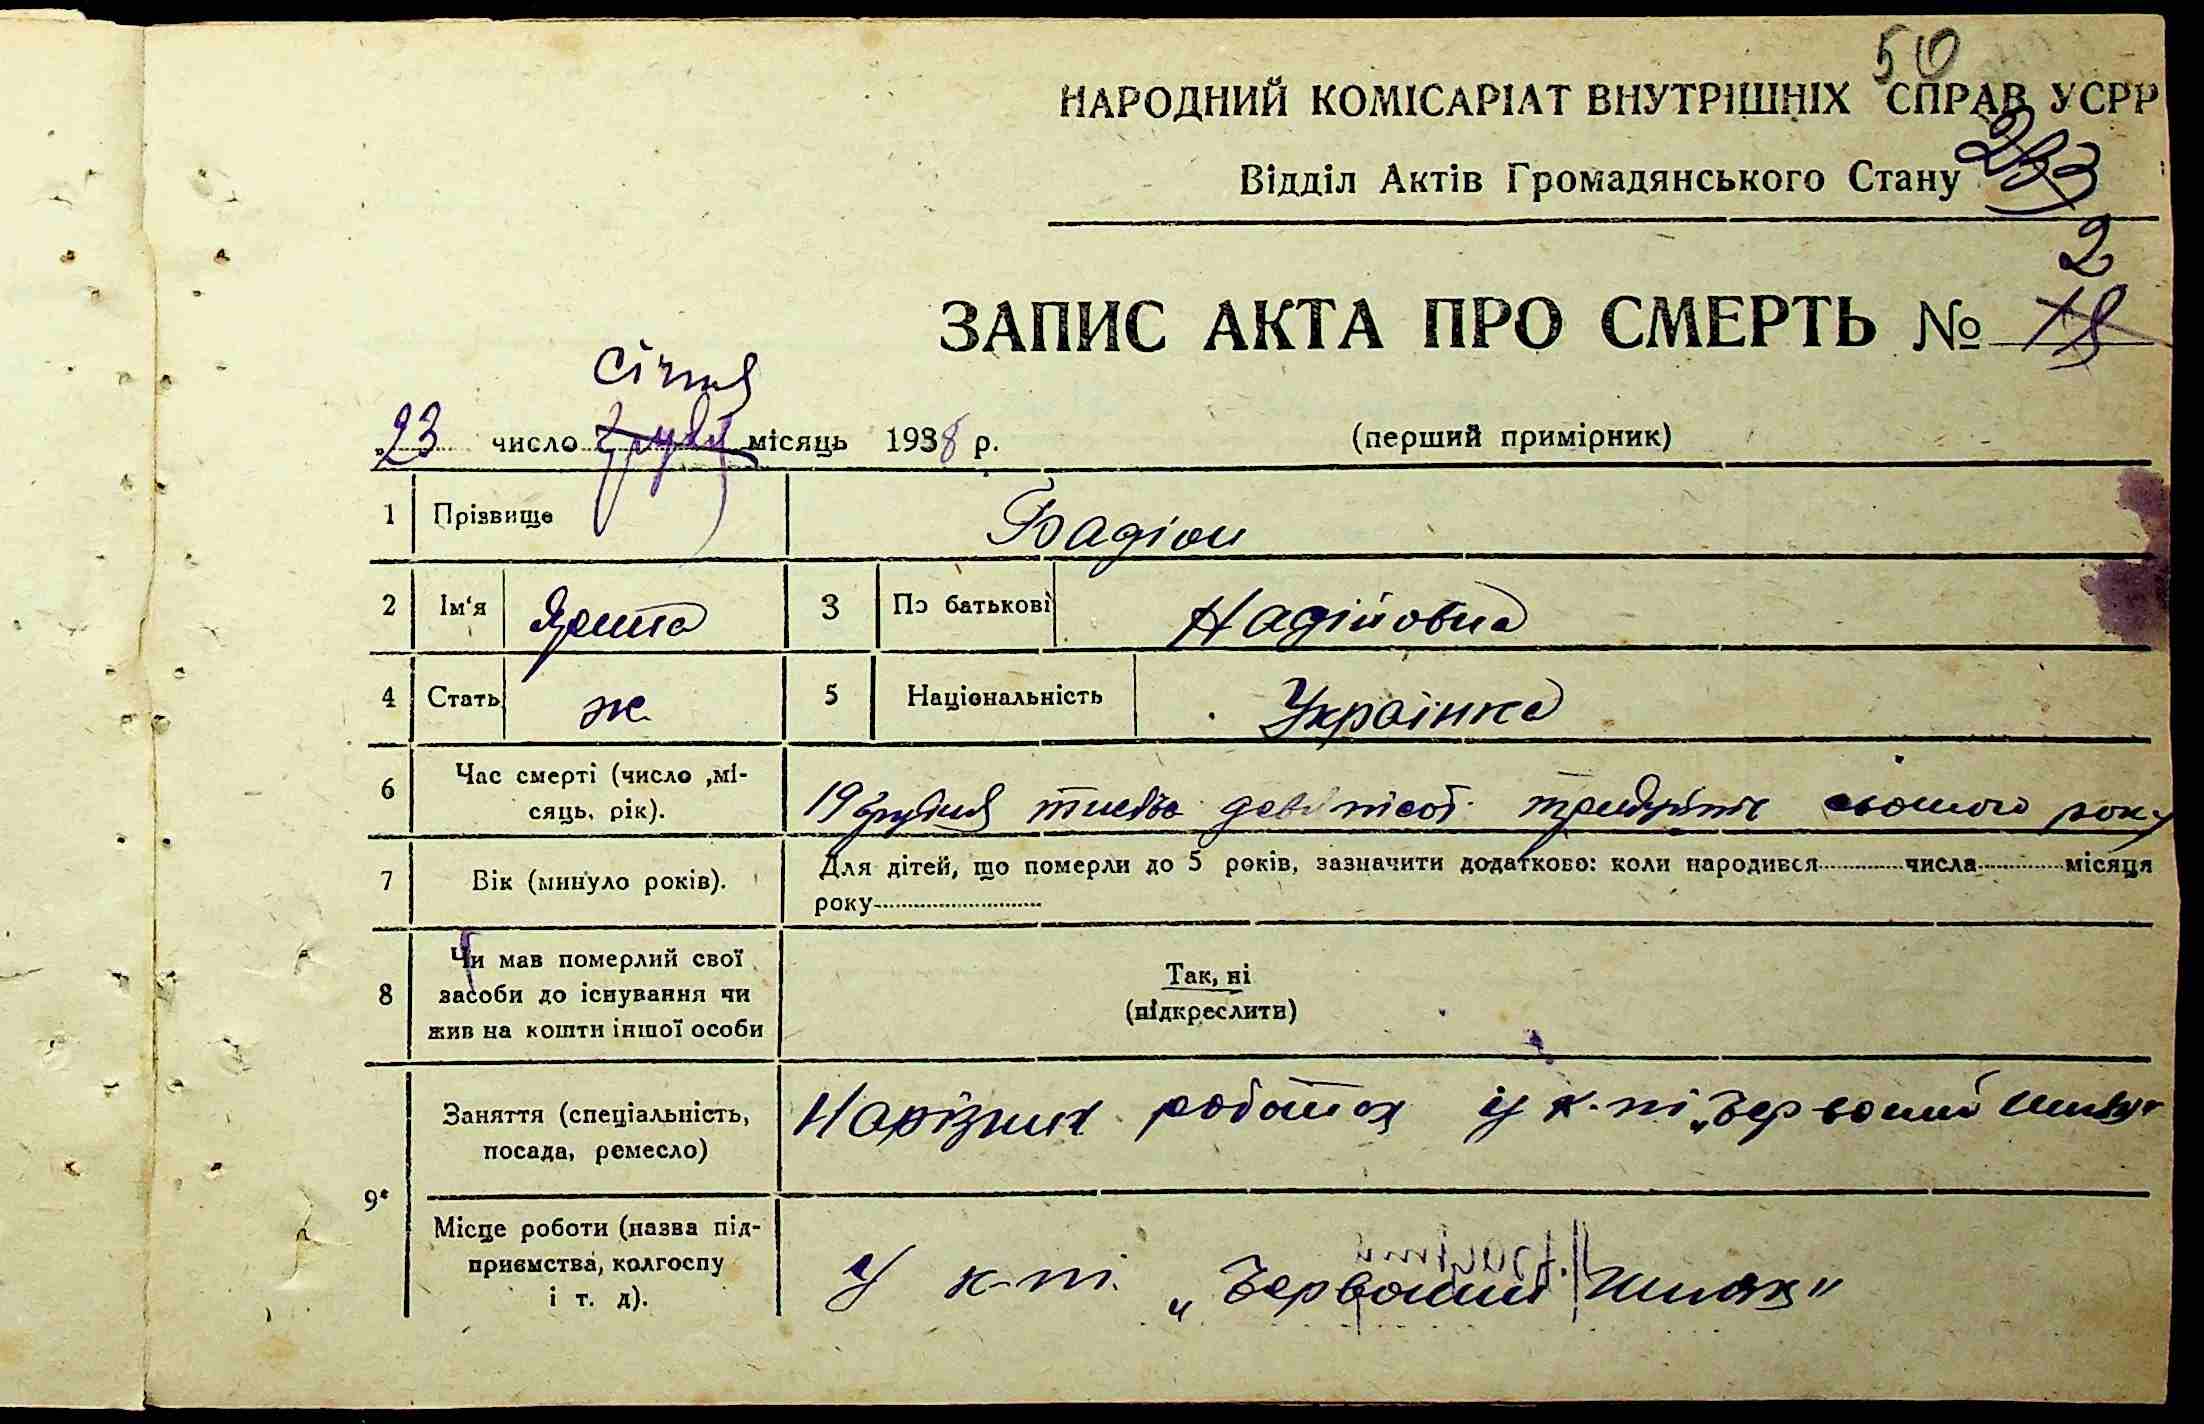 50
НАРОДНИЙ КОМІСАРІАТ ВНУТРІШНІХ СПРАВ УСРР
Відділ Актів Громадянського Стану
2
ЗАПИС АКТА ПРО СМЕРТЬ № 18
січня
„23 число грудня місяць 1938 р. (перший примірник)
1 Прізвище Бадіон
2 Ім'я Ярина 3 По батькові Надійовна
4 Стать ж 5 Національність Українка
6 Час смерті (число ,мі-
сяць, рік). 19 грудня тисяча девятсот тридцять сьомого року
7 Вік (минуло років). Для дітей, що померли до 5 років, зазначити додатково: коли народився числа місяця
року
8 Чи мав померлий свої
засоби до існування чи
жив на кошти іншої особи
Так, ні
(підкреслити)
9*
Заняття (спеціальність,
посада, ремесло) На різних роботах у к-пі „Червоний Шлях"
Місце роботи (назва під-
приємства, колгоспу
і т. д). У к-пі. „Червоний Шлях"